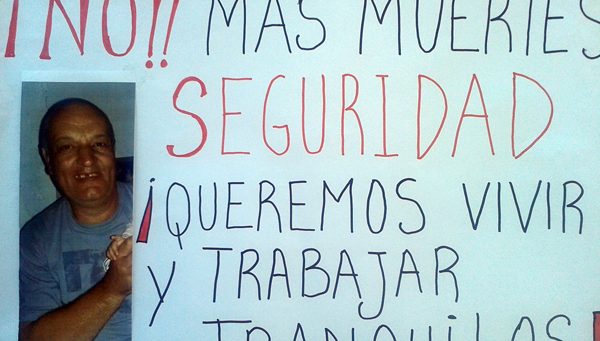 ¡NO!! MAS MUERTES
SEGURIDAD
¡QUEREMOS VIVIR
Y TRABAJAR
TRANQUILOS!